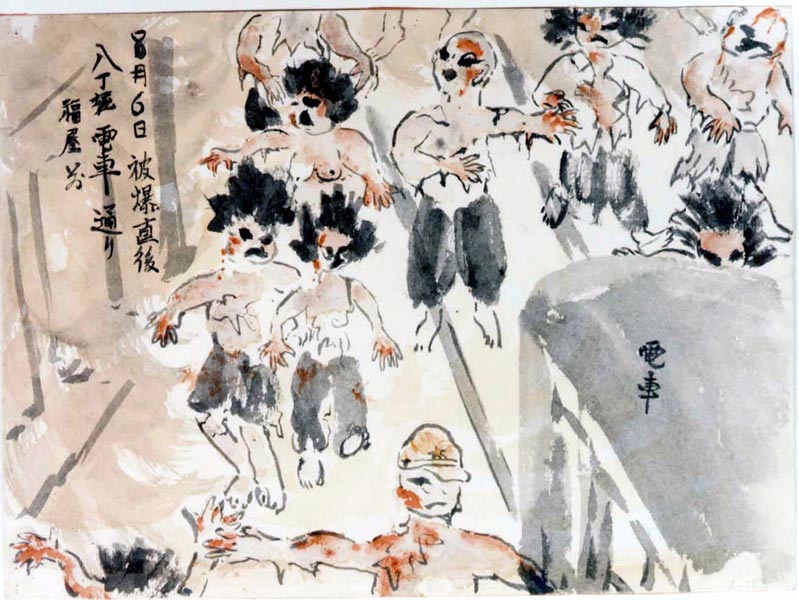 8月6日 被爆直後
八丁堀 電車 通り
福屋 前
電車